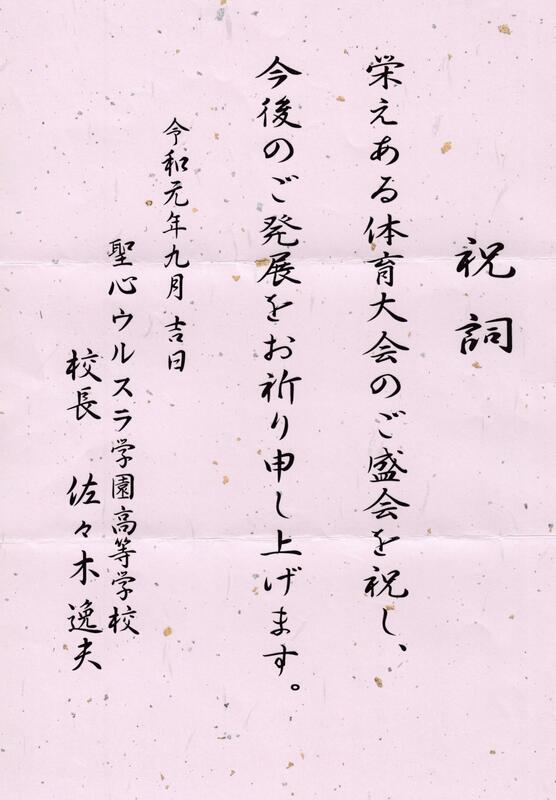 祝詞
栄えある体育大会のご盛会を祝し、
今後のご発展をお祈り申し上げます。
令和元年九月吉日
聖心ウルスラ学園高等学校
校長 佐々木逸夫